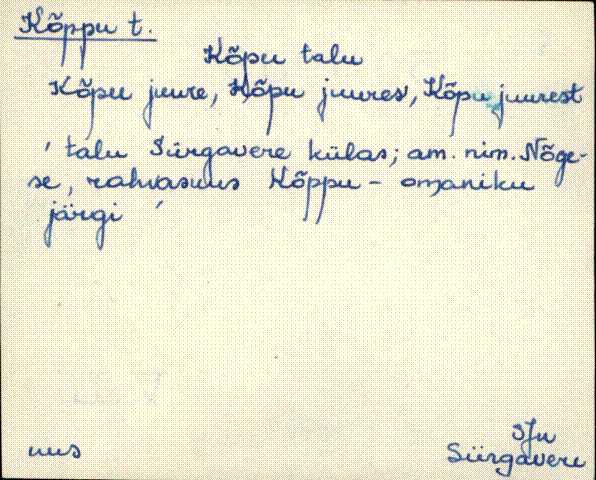 Kõppu t.
Kõpu talu
Kõpu juure, Kõpu juures, Kõpu juurest
' talu Sürgavere külas; am. nim. Nõge-
se, rahvasuus Kõppu - omaniku
järgi '
uus
SJn
Sürgavere